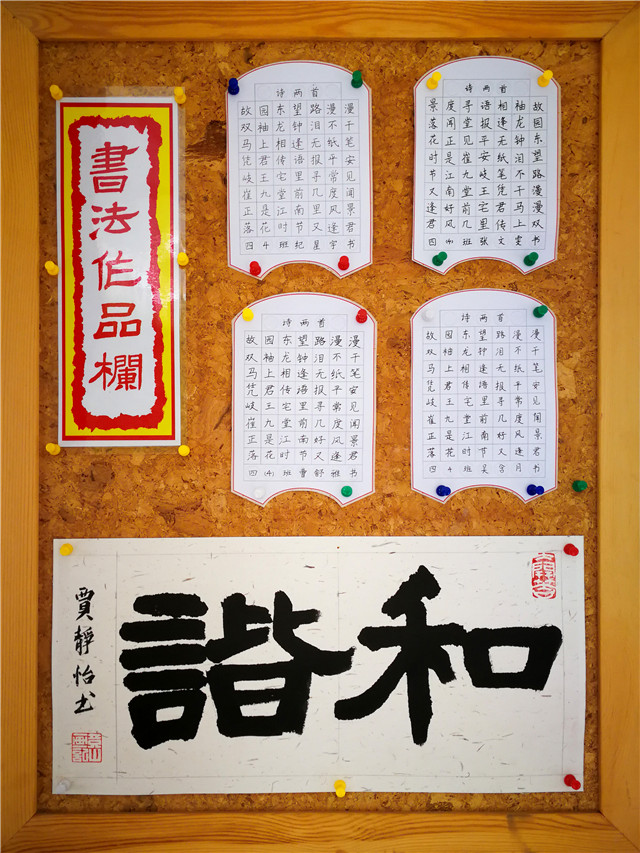 書法作品欄
诗两首
故园东望路漫漫
双袖龙钟泪不干
马上相逢无纸笔
凭君传语报平安
岐王宅里寻常见
崔九堂前几度闻
正是江南好风景
落花时节又逢君
四4班纪星宇书
诗两首
故园东望路漫漫双
袖龙钟泪不干马上
相逢无纸笔凭君传
语报平安岐王宅里
寻常见崔九堂前几
度闻正是江南好风
景落花时节又逢君
四(4)班张文雯书
诗两首
故园东望路漫漫
双袖龙钟泪不干
马上相逢无纸笔
凭君传语报平安
岐王宅里寻常见
崔九堂前几度闻
正是江南好风景
落花时节又逢君
四(4)班曹舒雅书
诗两首
故园东望路漫漫
双袖龙钟泪不干
马上相逢无纸笔
凭君传语报平安
岐王宅里寻常见
崔九堂前几度闻
正是江南好风景
落花时节又逢君
四4班吴月书
和諧
賈靜怡书